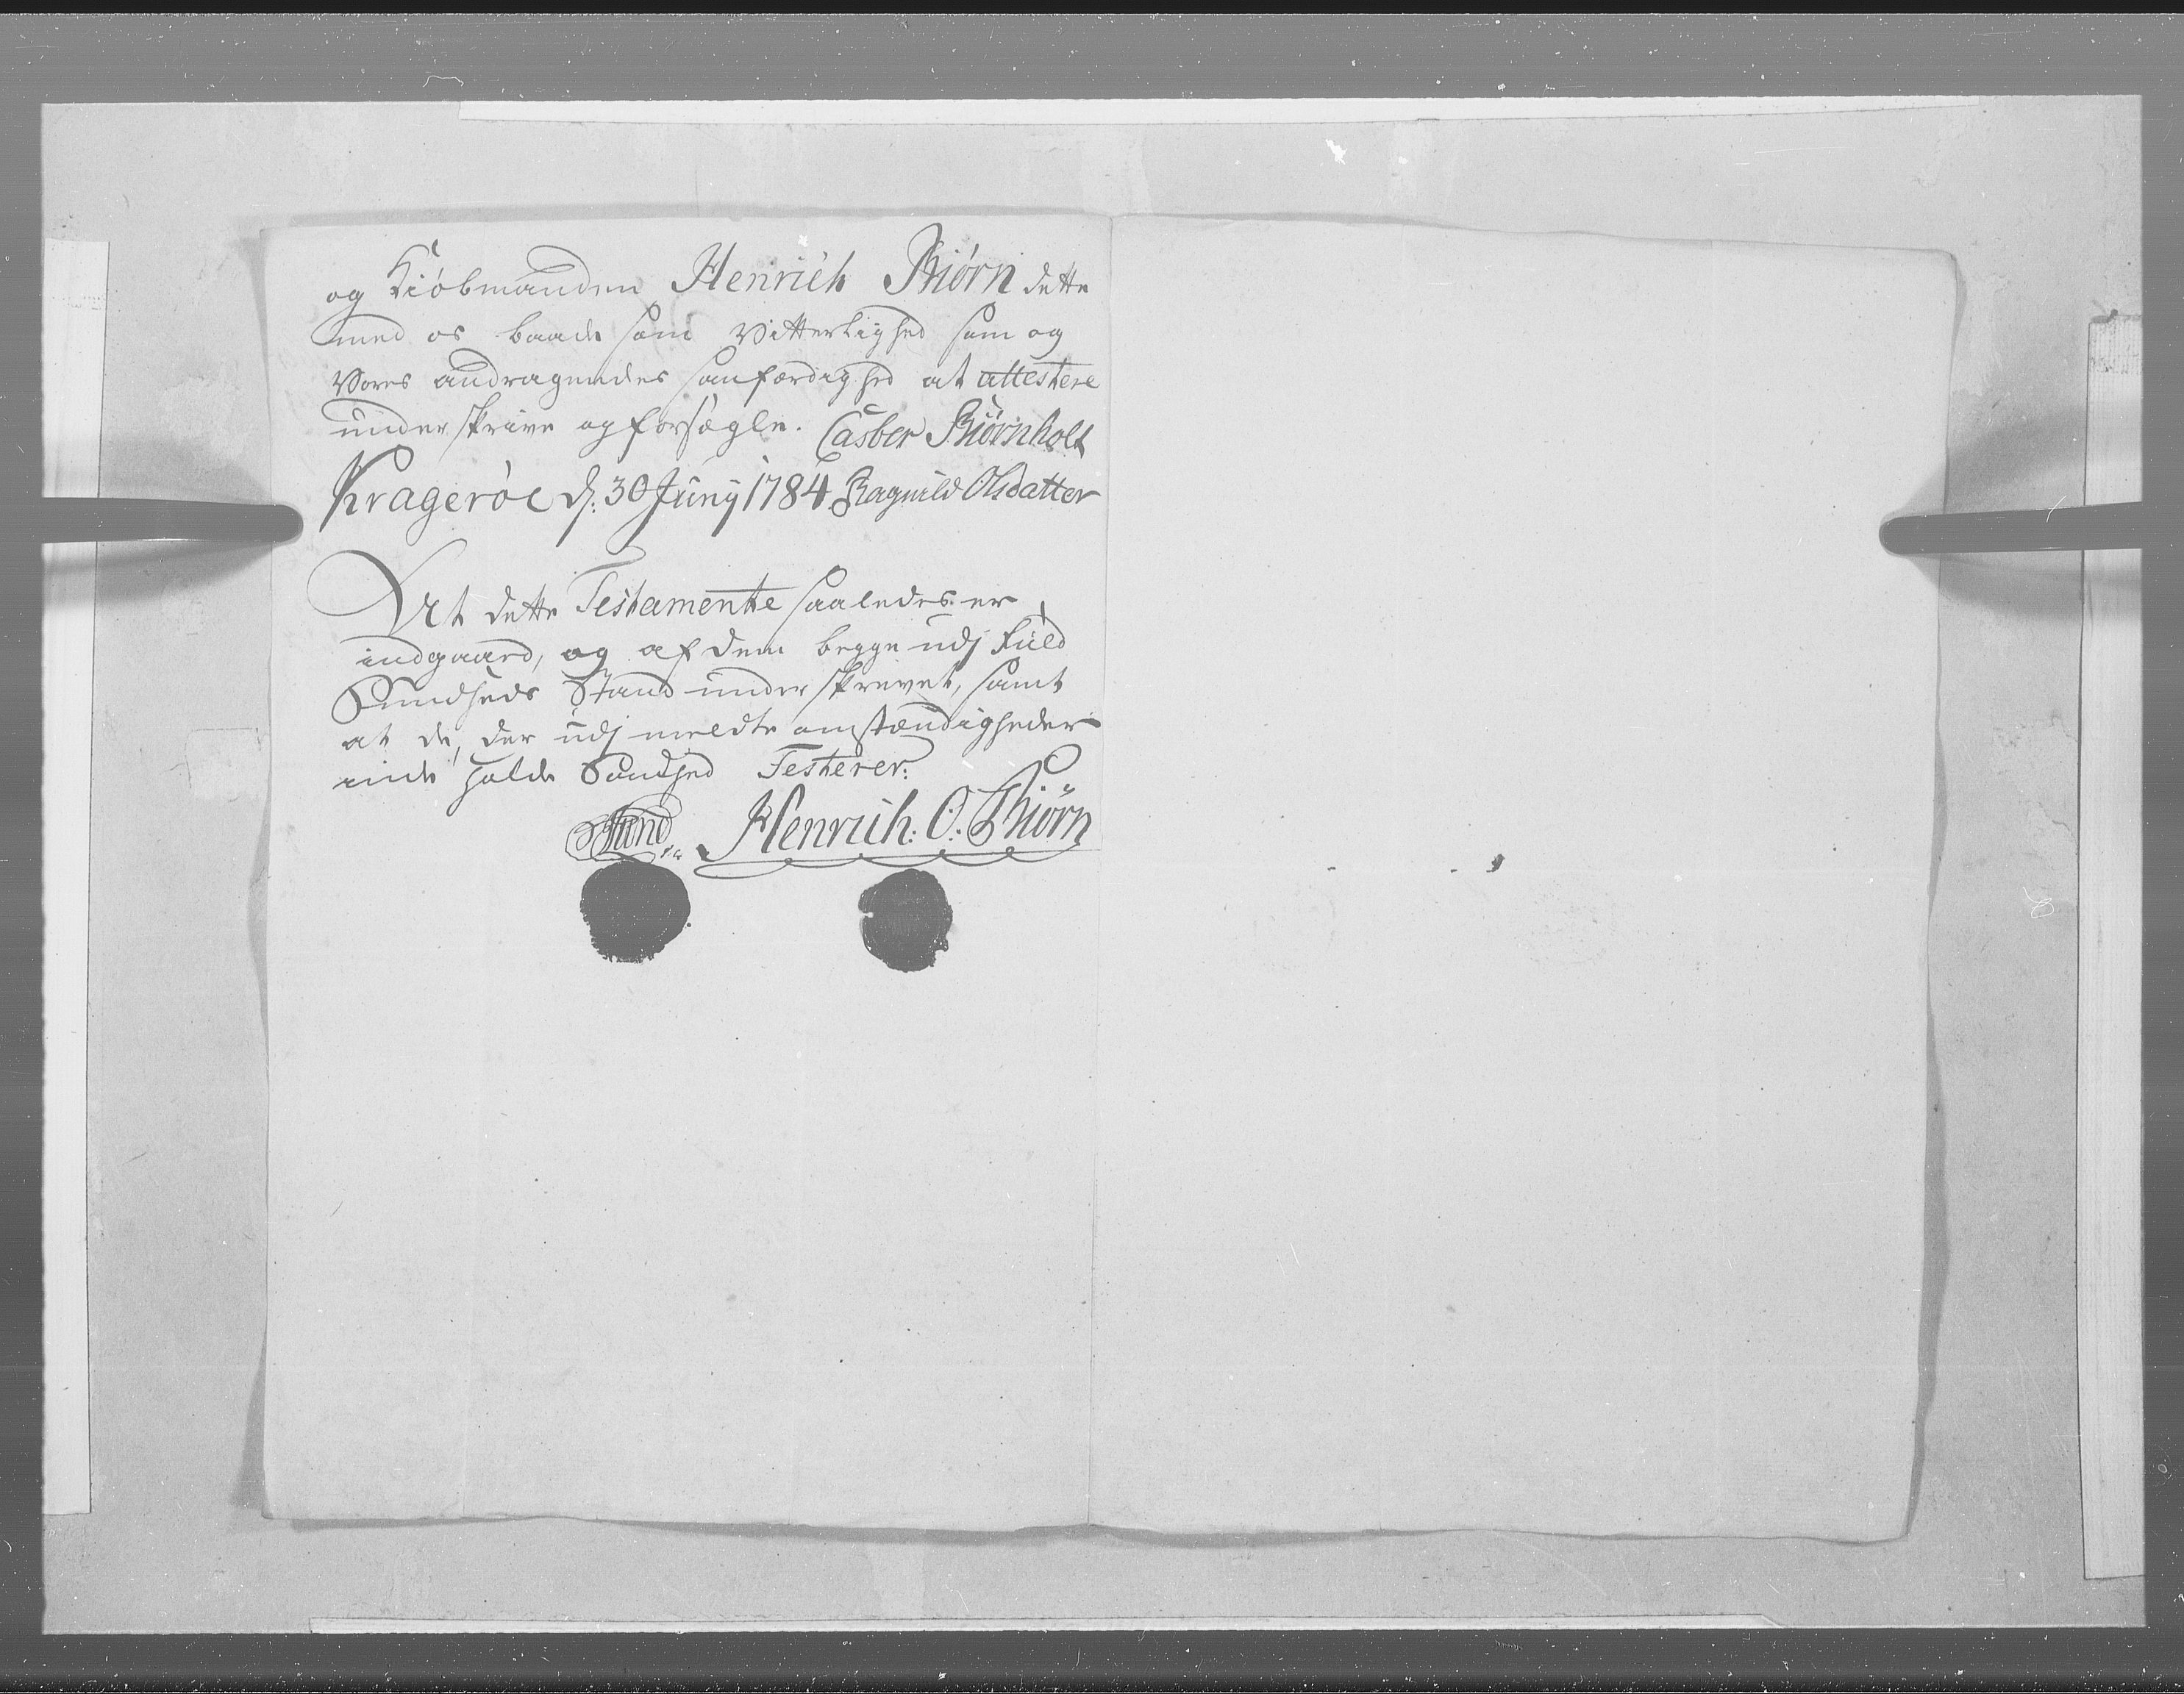 og Kiøbmanden Henrich Biørn dette
med os baade som Vitterlighed som og
Vores andragendes sanfærdighed at attestere
underskrive og forsegle. Casber Biørnholt
Kragerøe d: 30 Juny 1784 Ragnild Olsdatter
At dette Testamente saaledes er
indgaaed, og af dem begge udj fuld
Sundheds Stand underskrevet, samt
at de, der udj meldte omstændigheder
inde holde Sandhed Testerer:
Henrich: O: Biørn